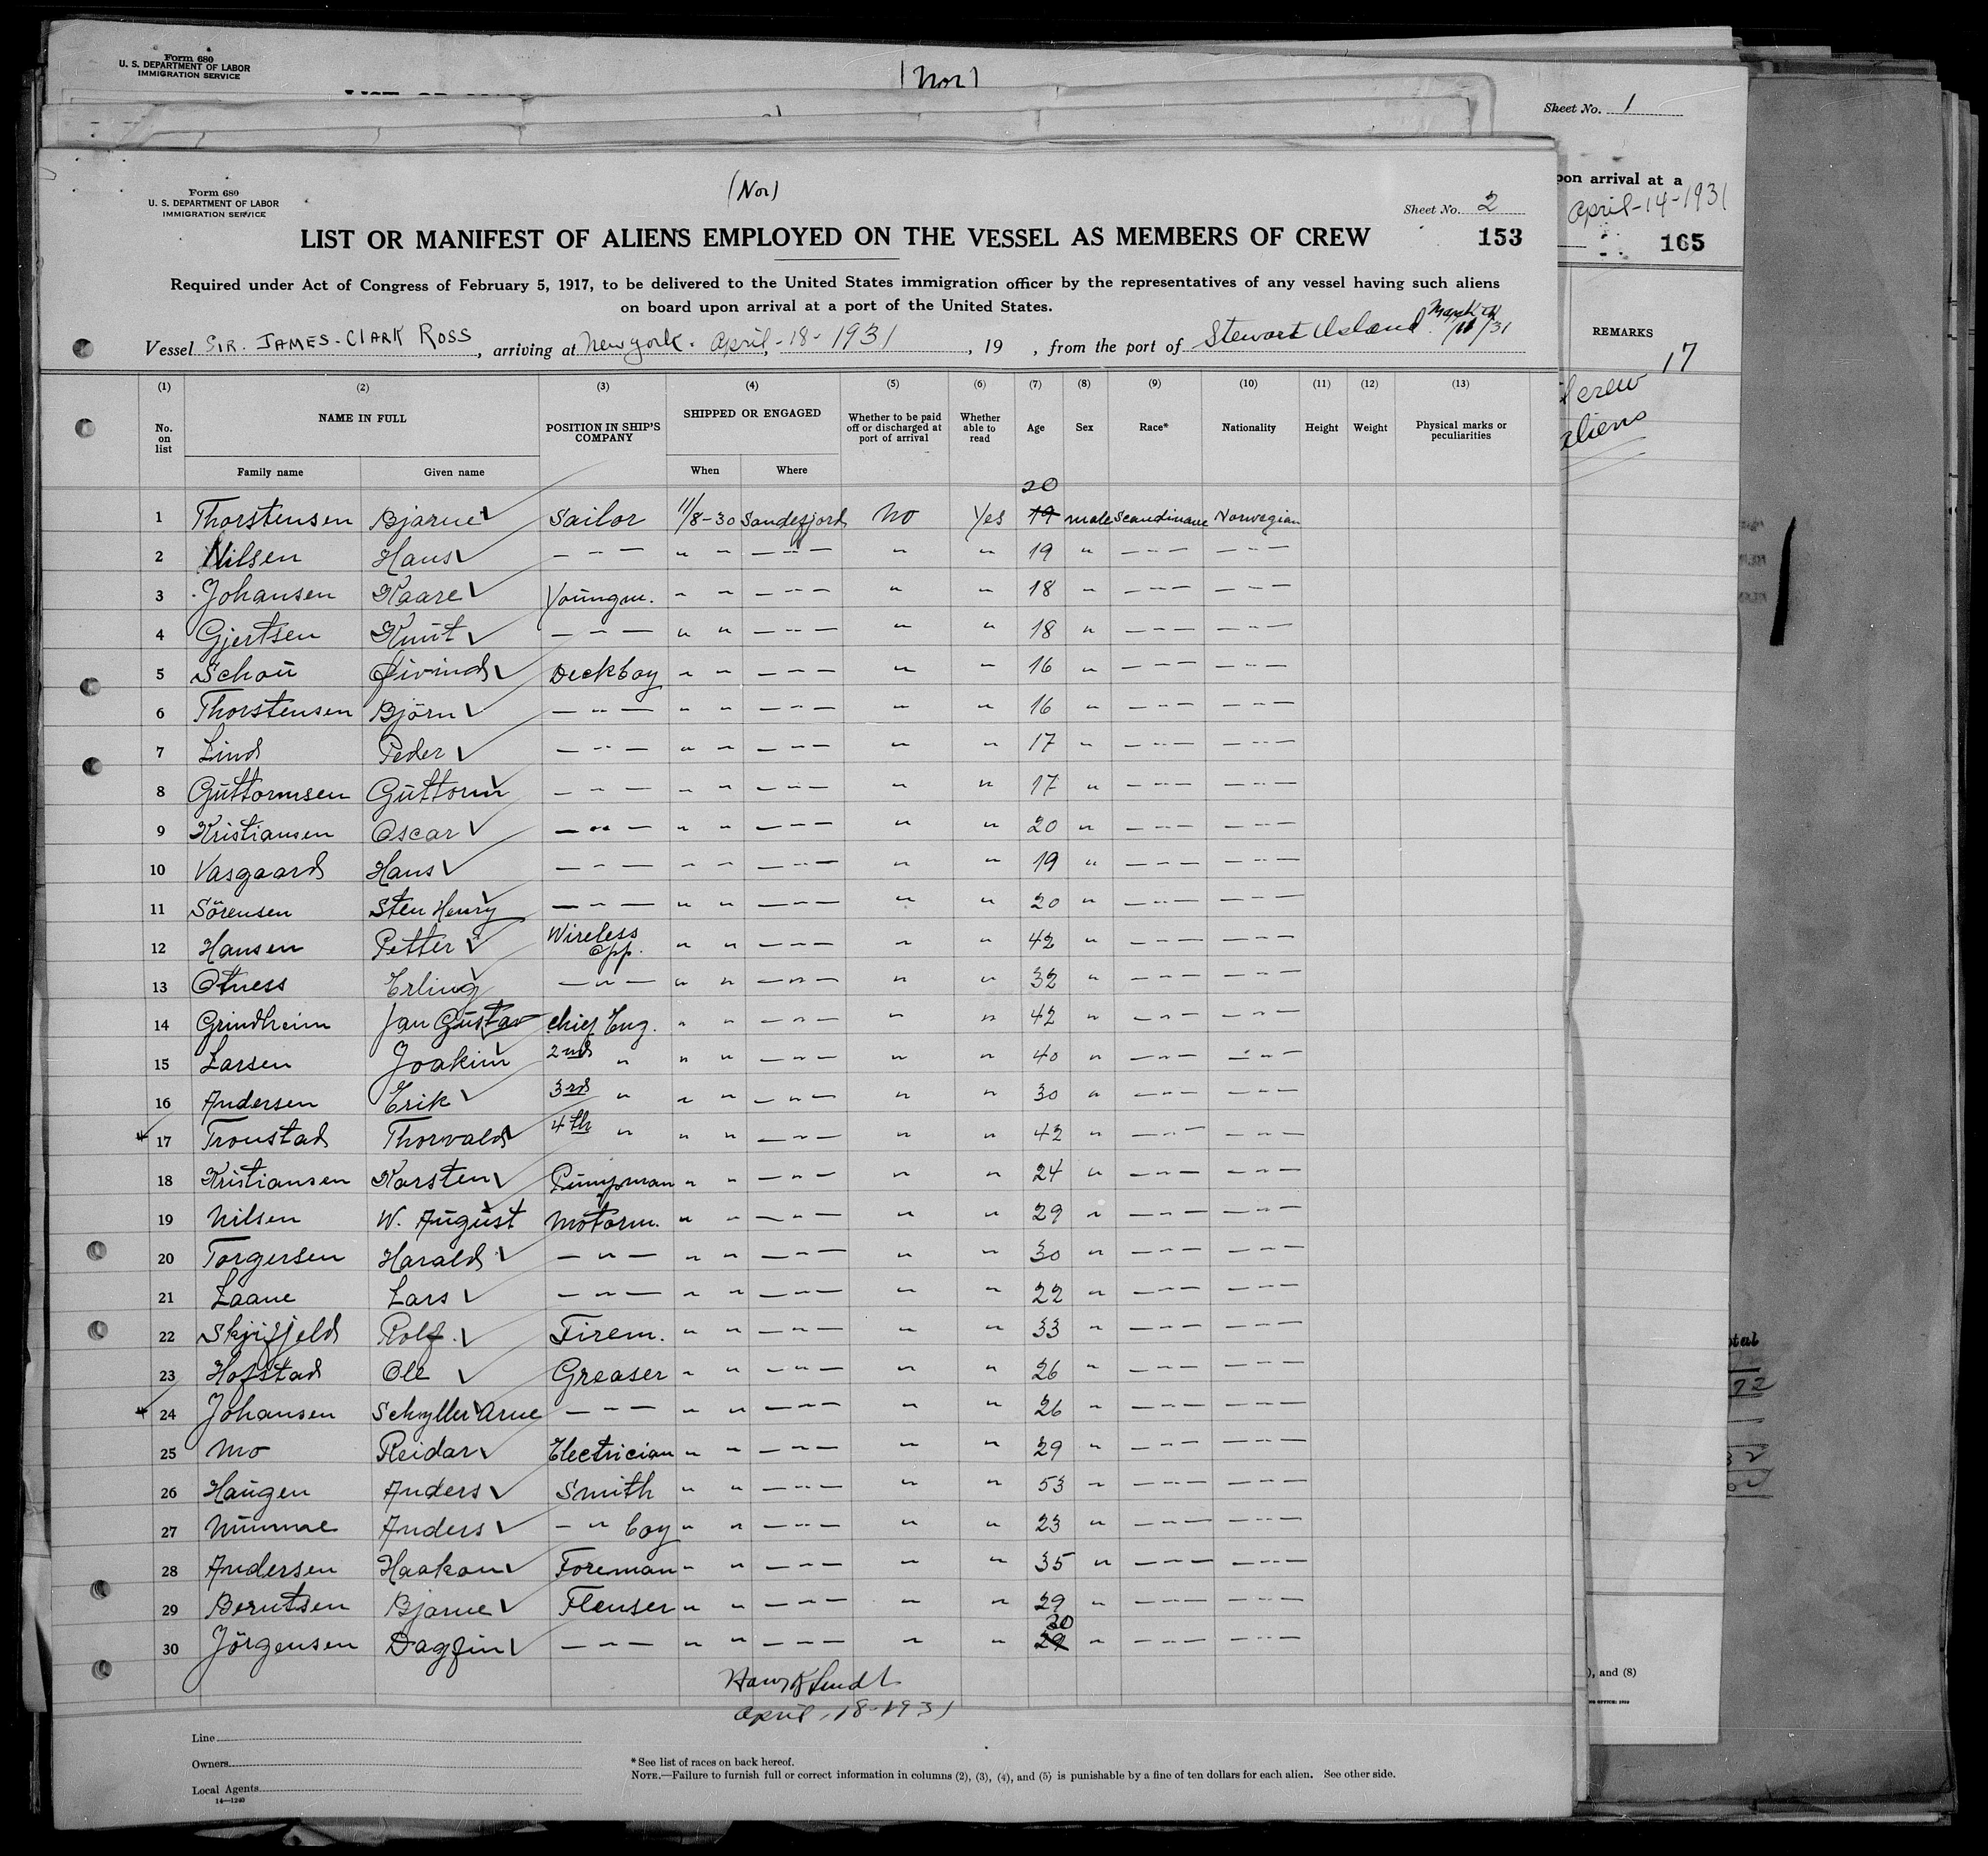 Form 680
U. S. DEPARTMENT OF LABOR
IMMIGRATION SERVICE
(Nor)
Sheet No. 1
pon arrival at a
April-14-1931
165
REMARKS
17
crew
aliens
Form 680
U. S. DEPARTMENT OF LABOR
IMMIGRATION SERVICE
(Nor)
Sheet No. 2
LIST OR MANIFEST OF ALIENS EMPLOYED ON THE VESSEL AS MEMBERS OF CREW
153
Required under Act of Congress of February 5, 1917, to be delivered to the United States immigration officer by the representatives of any vessel having such aliens
on board upon arrival at a port of the United States.
Vessel SIR. JAMES-CLARK ROSS, arriving at New york. April, -18-1931, 19 , from the port of Stewart Island March 11/31
(1) (2) (3) (4) (5) (6) (7) (8) (9) (10) (11) (12) (13)
No. on list NAME IN FULL POSITION IN SHIP'S COMPANY SHIPPED OR ENGAGED Whether to be paid off or discharged at port of arrival Whether able to read Age Sex Race* Nationality Height Weight Physical marks or peculiarities
Family name Given name When Where
20
1 Thorstensen Bjarne Sailor 11/8-30 Sandefjord No Yes 19 male Scandinave Norwegian
2 Nilsen Hans — " — " " — " — " " 19 " — " — — " —
3 Johansen Kaare Youngm. " " — " — " " 18 " — " — — " —
4 Gjertsen Knut — " — " " — " — " " 18 " — " — — " —
5 Schou Øivind Deckboy " " — " — " " 16 " — " — — " —
6 Thorstensen Björn — " — " " — " — " " 16 " — " — — " —
7 Lind Peder — " — " " — " — " " 17 " — " — — " —
8 Guttormsen Guttorm — " — " " — " — " " 17 " — " — — " —
9 Kristiansen Oscar — " — " " — " — " " 20 " — " — — " —
10 Vasgaard Hans — " — " " — " — " " 19 " — " — — " —
11 Sörensen Sten Henry — " — " " — " — " " 20 " — " — — " —
12 Hansen Petter Wireless Opp. " " — " — " " 42 " — " — — " —
13 Otness Erling — " — " " — " — " " 32 " — " — — " —
14 Grindheim Jan Gustav chief Eng. " " — " — " " 42 " — " — — " —
15 Larsen Joakim 2nd " " " — " — " " 40 " — " — — " —
16 Andersen Erik 3rd " " " — " — " " 30 " — " — — " —
17 Tronstad Thorvald 4th " " " — " — " " 42 " — " — — " —
18 Kristiansen Karsten Pumpman " " — " — " " 24 " — " — — " —
19 Nilsen W. August Motorm. " " — " — " " 29 " — " — — " —
20 Torgersen Harald — " — " " — " — " " 30 " — " — — " —
21 Laane Lars — " — " " — " — " " 22 " — " — — " —
22 Skjifjeld Rolf. Firem. " " — " — " " 33 " — " — — " —
23 Hofstad Ole Greaser " " — " — " " 26 " — " — — " —
24 Johansen Schyller Arne — " — " " — " — " " 26 " — " — — " —
25 Mo Reidar Electrician " " — " — " " 29 " — " — — " —
26 Haugen Anders Smith " " — " — " " 53 " — " — — " —
27 Numme Anders — " boy " " — " — " " 23 " — " — — " —
28 Andersen Haakon Foreman " " — " — " " 35 " — " — — " —
29 Berntsen Bjarne Flenser " " — " — " " 29 " — " — — " —
30
30 Jörgensen Dagfin — " — " " — " — " " 29 " — " — — " —
April-18-1931
Line
Owners
Local Agents
14—1240
*See list of races on back hereof.
NOTE.—Failure to furnish full or correct information in columns (2), (3), (4), and (5) is punishable by a fine of ten dollars for each alien. See other side.
), and (8)